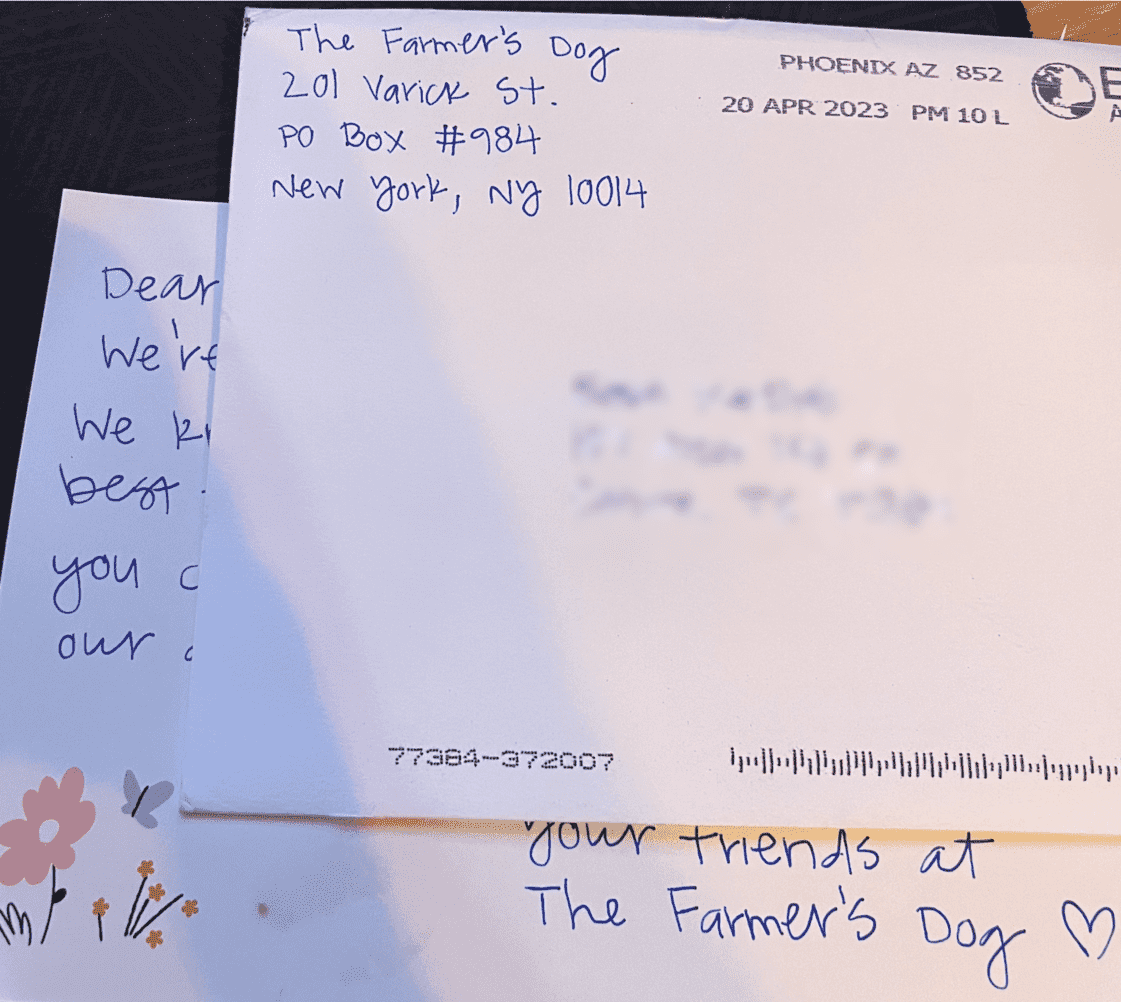 The Farmer's Dog
201 Varick St.
PO Box #984
New York, NY 10014
PHOENIX AZ 852
20 APR 2023 PM 10 L
77384-372007
Dear
We're
We
best
you
our
your friends at
The Farmer's Dog ♡